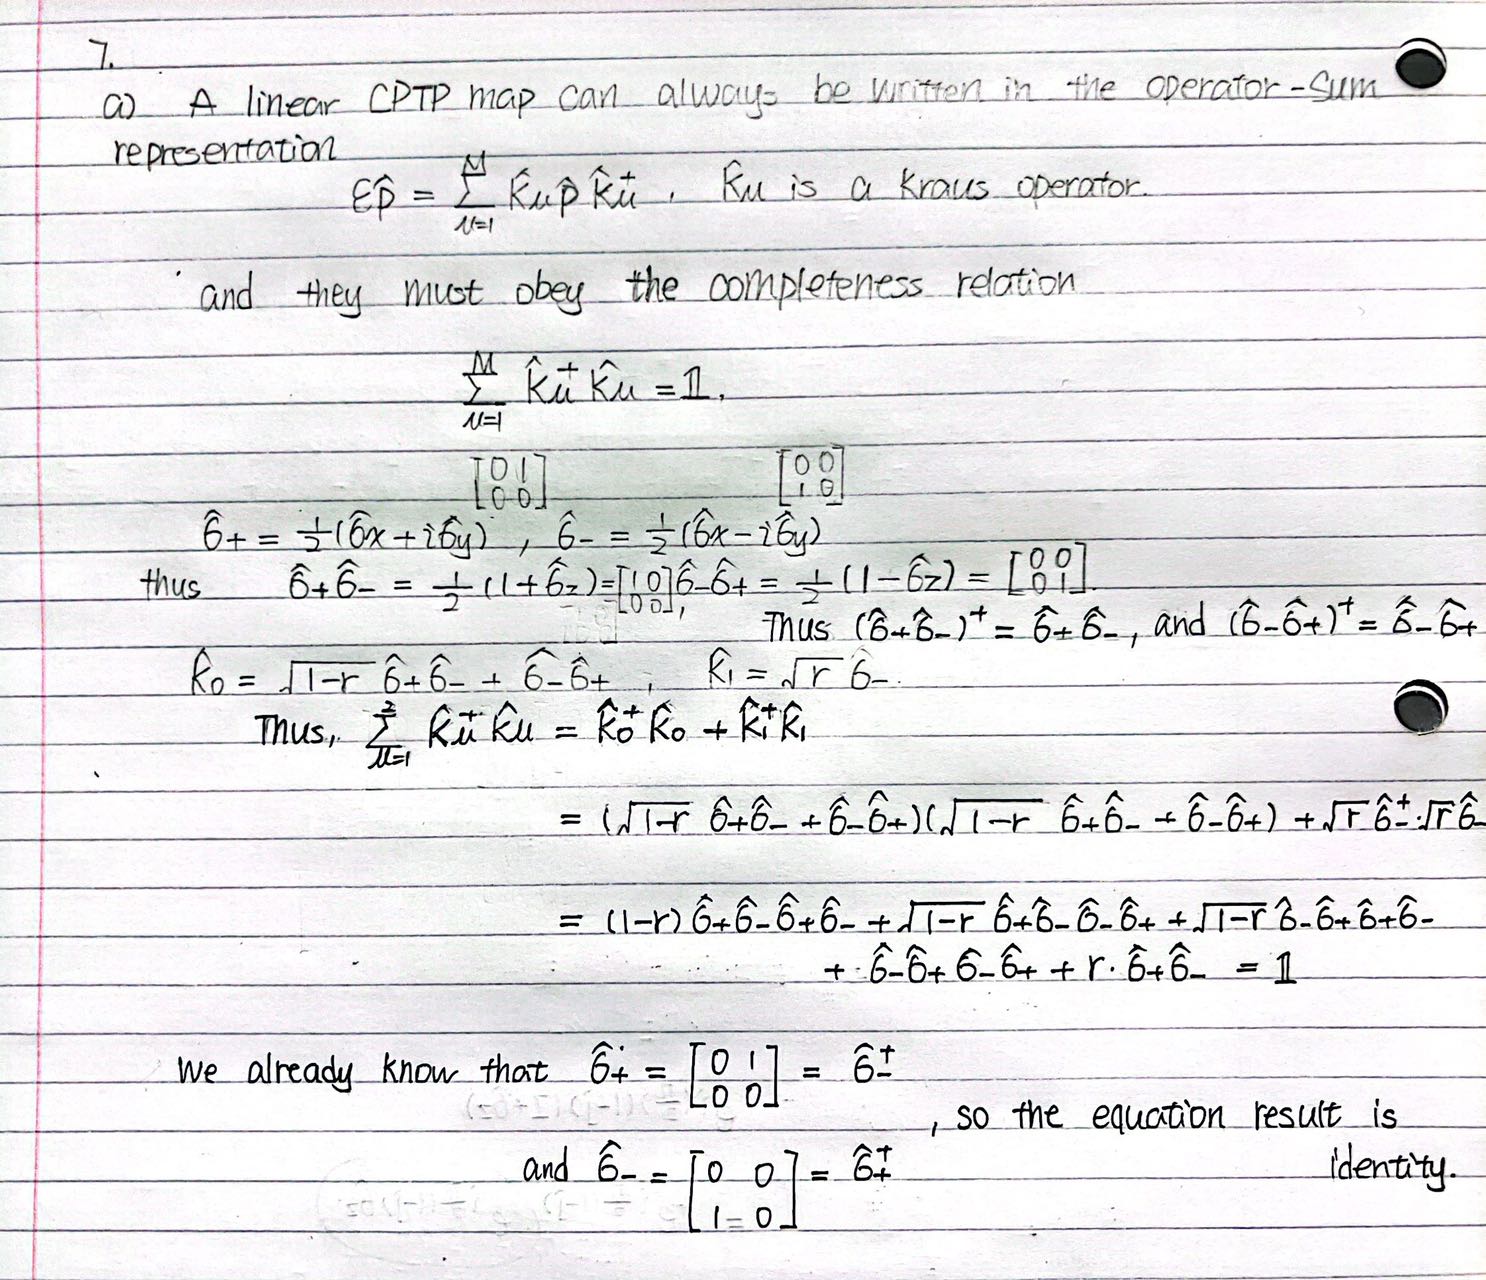 7.
a) A linear CPTP map can always be written in the operator-sum
representation
ε ρ̂ = Σ_{μ=1}^{M} K̂μ ρ̂ K̂μ⁺ . K̂μ is a Kraus operator.
and they must obey the completeness relation
Σ_{μ=1}^{M} K̂μ⁺ K̂μ = 𝟙.
[0 1; 0 0] [0 0; 1 0]
σ̂+ = ½(σ̂x + iσ̂y) , σ̂- = ½(σ̂x - iσ̂y)
thus σ̂+σ̂- = ½(1+σ̂z) = [1 0; 0 0], σ̂-σ̂+ = ½(1-σ̂z) = [0 0; 0 1].
Thus (σ̂+σ̂-)⁺ = σ̂+σ̂-, and (σ̂-σ̂+)⁺ = σ̂-σ̂+
K̂0 = √(1-r) σ̂+σ̂- + σ̂-σ̂+ , K̂1 = √r σ̂-.
Thus, Σ_{μ=1}^{2} K̂μ⁺ K̂μ = K̂0⁺ K̂0 + K̂1⁺ K̂1
= (√(1-r) σ̂+σ̂- + σ̂-σ̂+)(√(1-r) σ̂+σ̂- + σ̂-σ̂+) + √r σ̂-⁺·√r σ̂-
= (1-r) σ̂+σ̂-σ̂+σ̂- + √(1-r) σ̂+σ̂-σ̂-σ̂+ + √(1-r) σ̂-σ̂+σ̂+σ̂-
+ σ̂-σ̂+σ̂-σ̂+ + r·σ̂+σ̂- = 𝟙
We already know that σ̂+ = [0 1; 0 0] = σ̂-⁺
, so the equation result is
and σ̂- = [0 0; 1 0] = σ̂+⁺
identity.